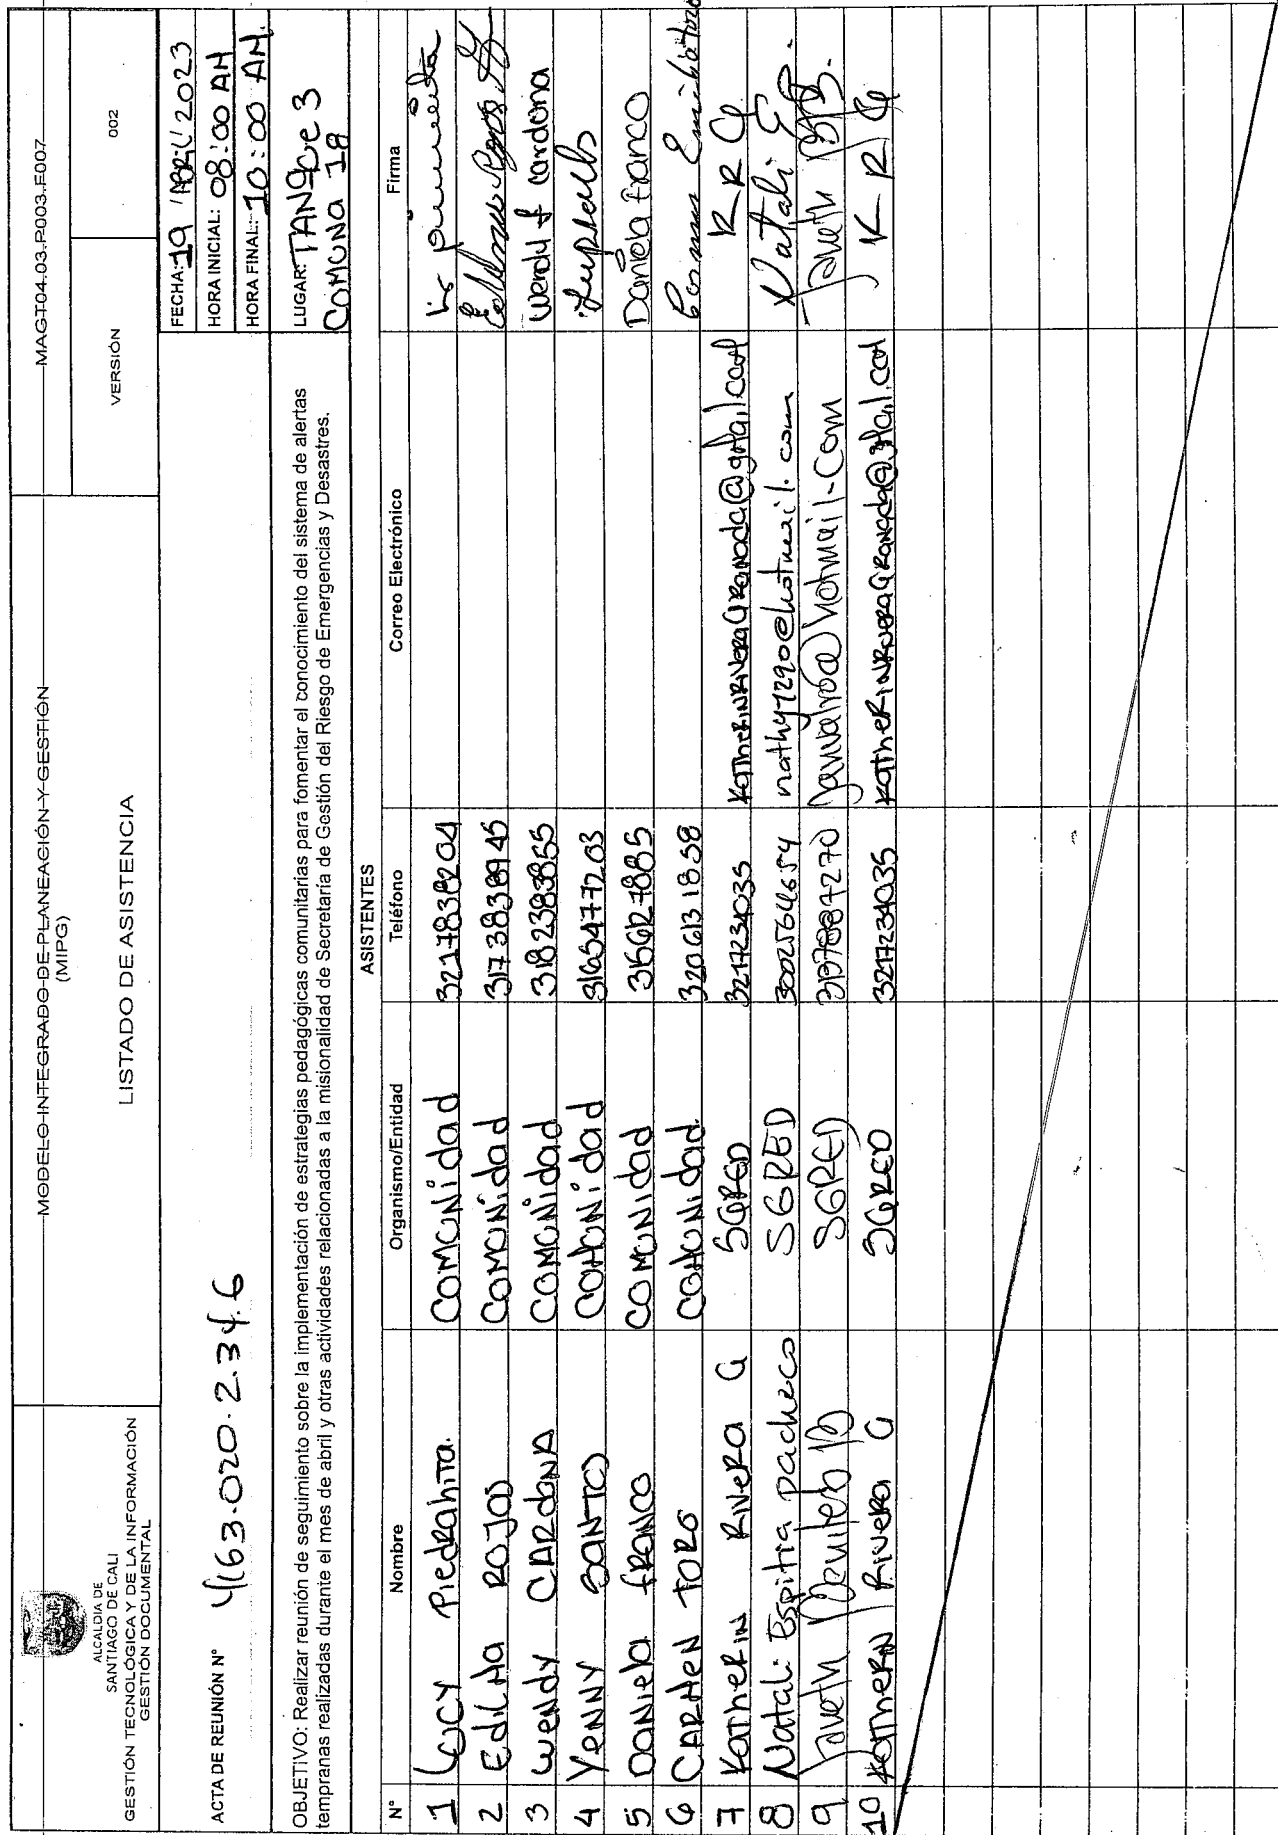 ALCALDIA DE
SANTIAGO DE CALI
GESTIÓN TECNOLÓGICA Y DE LA INFORMACIÓN
GESTIÓN DOCUMENTAL
MODELO INTEGRADO DE PLANEACIÓN Y GESTIÓN
(MIPG)
LISTADO DE ASISTENCIA
MAGT04.03.P003.F007
VERSIÓN 002
ACTA DE REUNIÓN N° 4163.020.2.34.6
FECHA: 19 ABRIL 2023
HORA INICIAL: 08:00 AM
HORA FINAL: 10:00 AM
OBJETIVO: Realizar reunión de seguimiento sobre la implementación de estrategias pedagógicas comunitarias para fomentar el conocimiento del sistema de alertas
tempranas realizadas durante el mes de abril y otras actividades relacionadas a la misionalidad de Secretaría de Gestión del Riesgo de Emergencias y Desastres.
LUGAR: TANQUE 3
COMUNA 18
ASISTENTES
N° Nombre Organismo/Entidad Teléfono Correo Electrónico Firma
1 LUCY Piedrahita COMUNidad 3217838204
2 Edilma ROJOS COMUNidad 3173838945
3 Wendy CARDONA COMUNidad 3182383855 Wendy f cardona
4 Yenny SANTOS COMUNidad 3165477203
5 Daniela fRANCO COMUNidad 3156127885 Daniela franco
6 CARMEN TORO COMUNidad 3206131858
7 Katherin Rivera G SGRED 3217234035 KatherinRiveraGranada@gmail.com K R G
8 Natali Espitia pacheco SGRED 3002564654 nathy7290@hotmail.com Natali E P.
9 SGRED
10 Katherin Rivera G SGRED 3217234035 KatherinRiveraGranada@gmail.com K R G